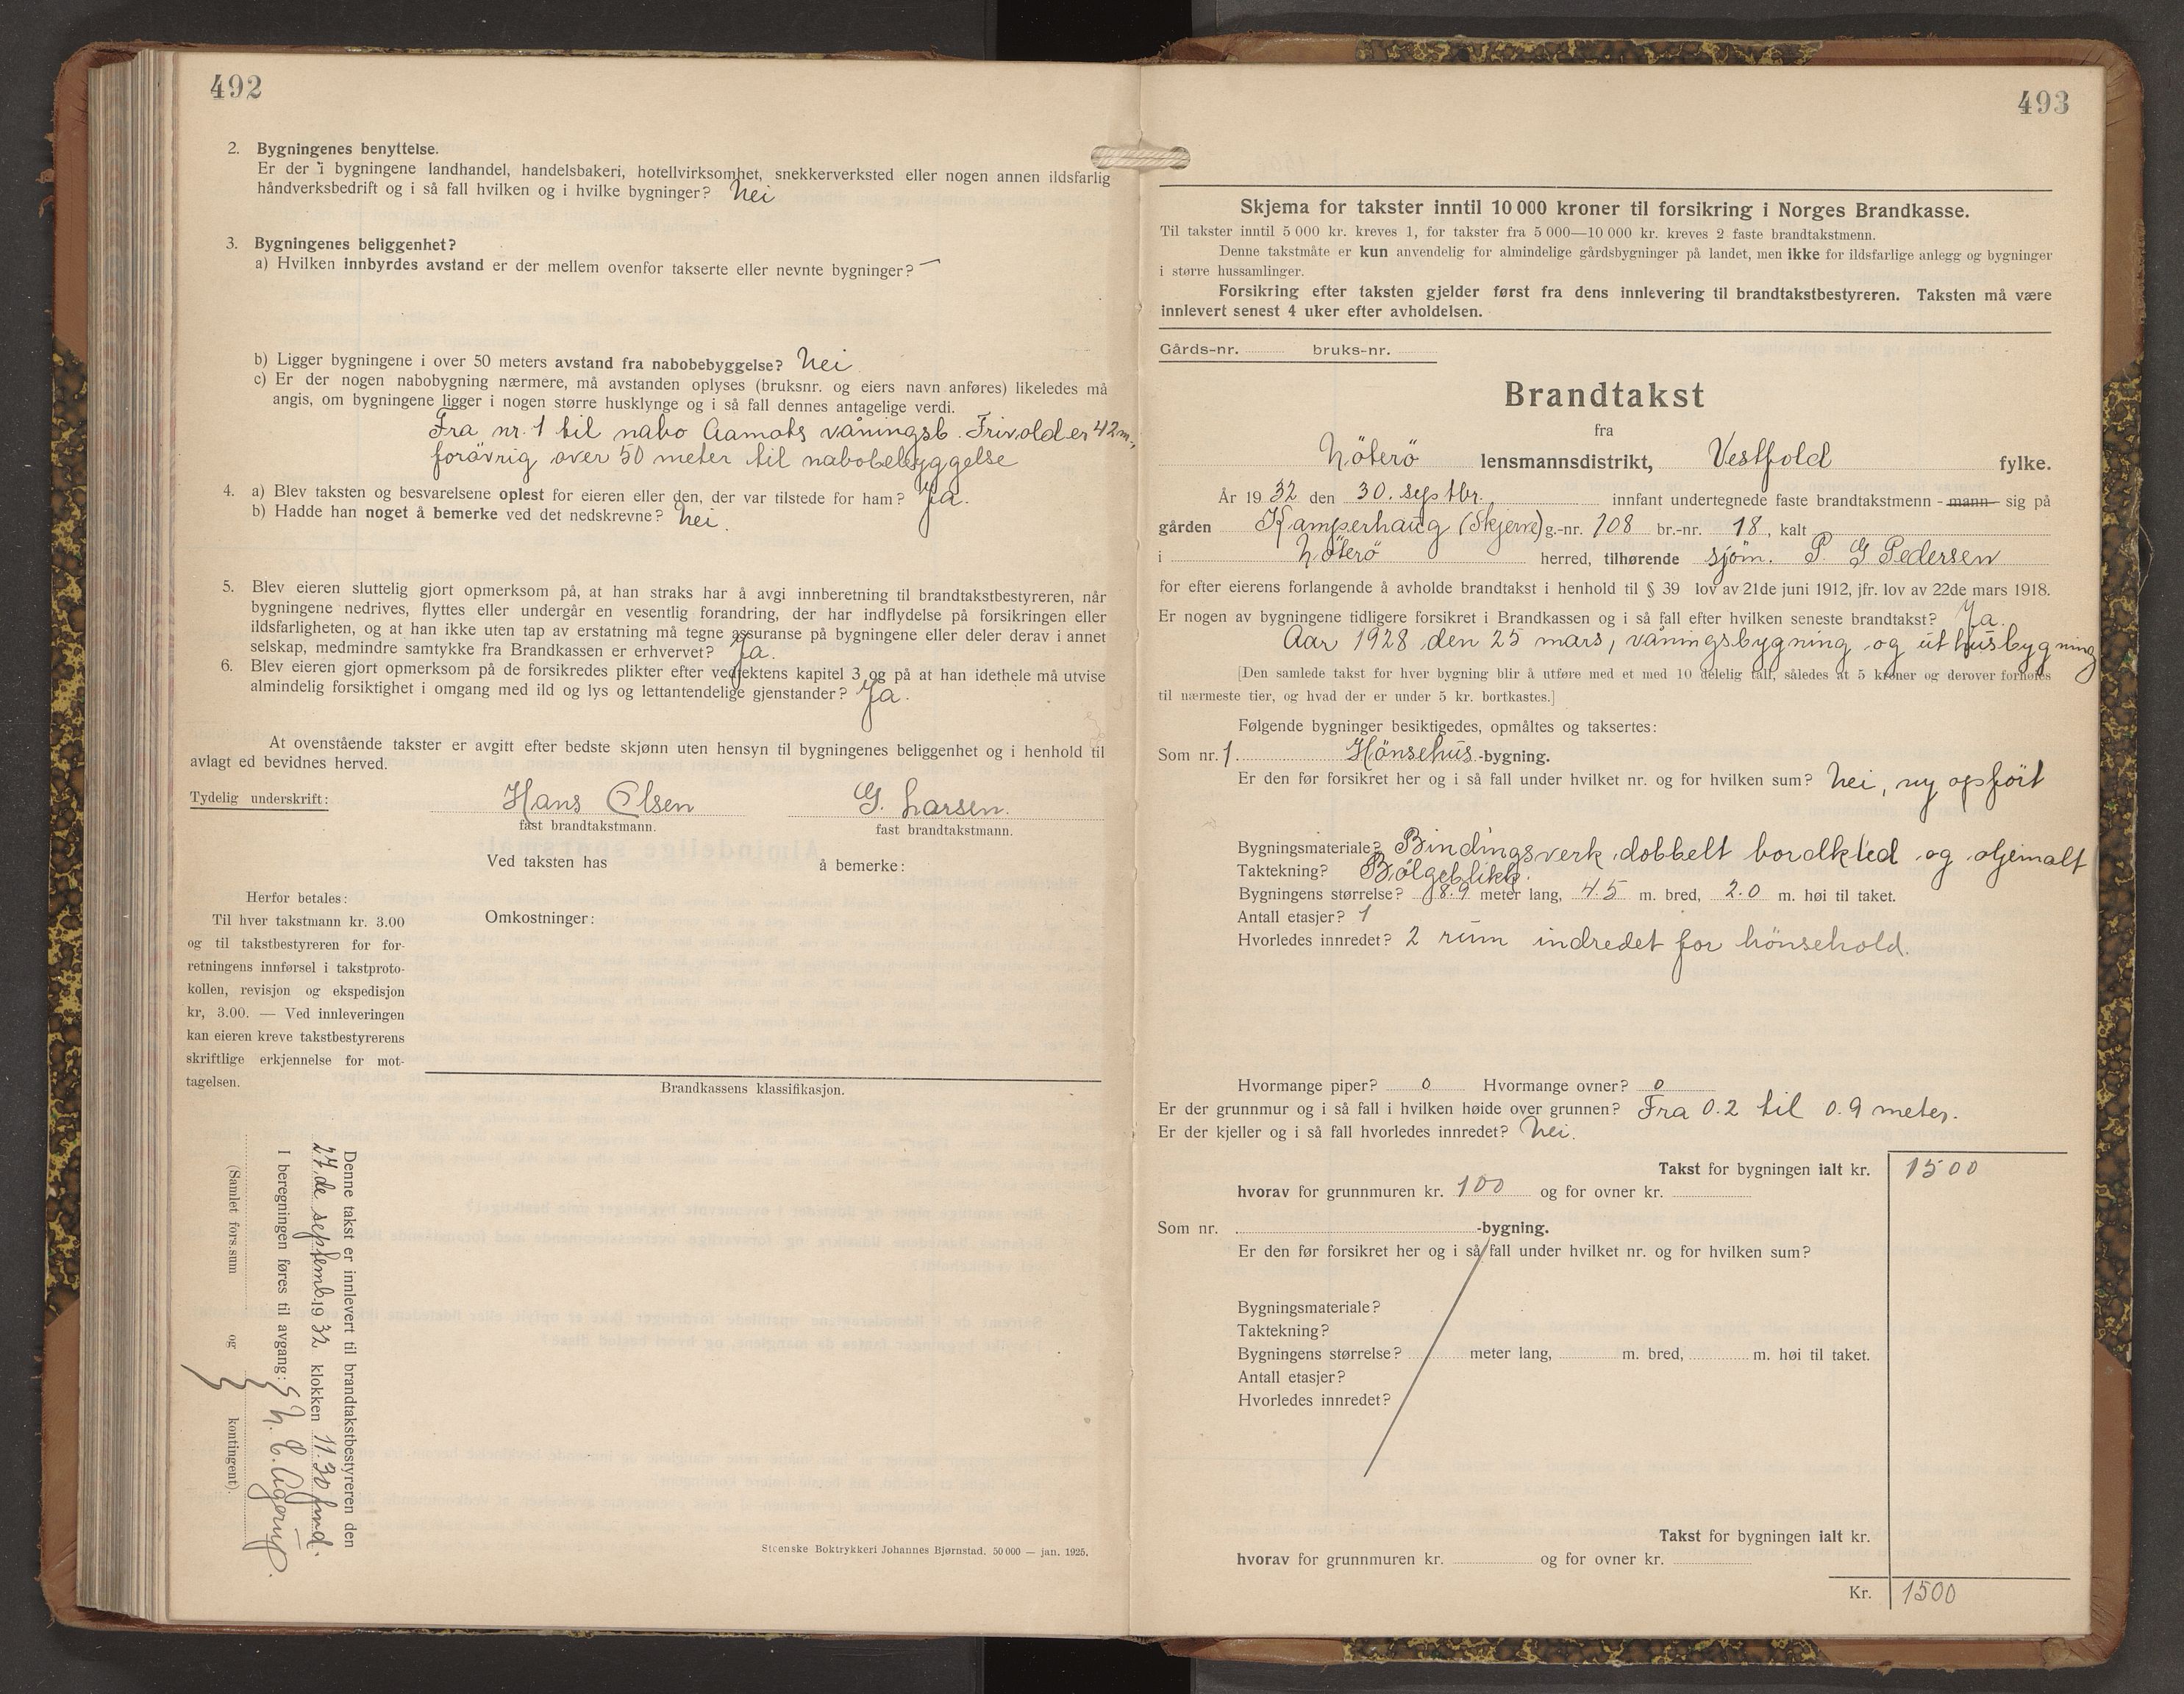 492
2. Bygningenes benyttelse.
Er der i bygningene landhandel, handelsbakeri, hotellvirksomhet, snekkerverksted eller nogen annen ildsfarlig
håndverksbedrift og i så fall hvilken og i hvilke bygninger? Nei
3. Bygningenes beliggenhet?
a) Hvilken innbyrdes avstand er der mellem ovenfor takserte eller nevnte bygninger? —
b) Ligger bygningene i over 50 meters avstand fra nabobebyggelse? Nei
c) Er der nogen nabobygning nærmere, må avstanden oplyses (bruksnr. og eiers navn anføres) likeledes må
angis, om bygningene ligger i nogen større husklynge og i så fall dennes antagelige verdi.
Fra nr. 1 til nabo Aamots våningsb. Frivold er 42 m.,
forövrig over 50 meter til nabobebyggelse
4. a) Blev taksten og besvarelsene oplest for eieren eller den, der var tilstede for ham? Ja.
b) Hadde han noget å bemerke ved det nedskrevne? Nei.
5. Blev eieren sluttelig gjort opmerksom på, at han straks har å avgi innberetning til brandtakstbestyreren, når
bygningene nedrives, flyttes eller undergår en vesentlig forandring, der har indflydelse på forsikringen eller
ildsfarligheten, og at han ikke uten tap av erstatning må tegne assuranse på bygningene eller deler derav i annet
selskap, medmindre samtykke fra Brandkassen er erhvervet? Ja.
6. Blev eieren gjort opmerksom på de forsikredes plikter efter vedtektens kapitel 3 og på at han idethele må utvise
almindelig forsiktighet i omgang med ild og lys og lettantendelige gjenstander? Ja.
At ovenstående takster er avgitt efter bedste skjønn uten hensyn til bygningenes beliggenhet og i henhold til
avlagt ed bevidnes herved.
Tydelig underskrift: Hans Olsen G. Larsen.
fast brandtakstmann. fast brandtakstmann.
Ved taksten has å bemerke:
Herfor betales:
Til hver takstmann kr. 3.00
og til takstbestyreren for for-
retningens innførsel i takstproto-
kollen, revisjon og ekspedisjon
kr, 3.00. — Ved innleveringen
kan eieren kreve takstbestyrerens
skriftlige erkjennelse for mot-
tagelsen.
Omkostninger:
Brandkassens klassifikasjon.
Denne takst er innlevert til brandtakstbestyreren den
27. de septemb. 1932 klokken 11.30 fmd.
I beregningen føres til avgang:
(Samlet fors.sum og kontingent).
Steenske Boktrykkeri Johannes Bjørnstad. 50 000 — jan. 1925.
493
Skjema for takster inntil 10 000 kroner til forsikring i Norges Brandkasse.
Til takster inntil 5 000 kr. kreves 1, for takster fra 5 000—10 000 kr. kreves 2 faste brandtakstmenn.
Denne takstmåte er kun anvendelig for almindelige gårdsbygninger på landet, men ikke for ildsfarlige anlegg og bygninger
i større hussamlinger.
Forsikring efter taksten gjelder først fra dens innlevering til brandtakstbestyreren. Taksten må være
innlevert senest 4 uker efter avholdelsen.
Gårds-nr. bruks-nr.
Brandtakst
fra
Nöterö lensmannsdistrikt, Vestfold fylke.
År 1932 den 30. septbr. innfant undertegnede faste brandtakstmenn - mann sig på
gården Kamperhaug (Skjerve) g.-nr. 108 br.-nr. 18, kalt
i Nöterö herred, tilhørende sjöm. P. G Pedersen
for efter eierens forlangende å avholde brandtakst i henhold til § 39 lov av 21de juni 1912, jfr. lov av 22de mars 1918.
Er nogen av bygningene tidligere forsikret i Brandkassen og i så fall efter hvilken seneste brandtakst? Ja.
Aar 1928 den 25 mars, våningsbygning og uthusbygning
[Den samlede takst for hver bygning blir å utføre med et med 10 delelig tall, således at 5 kroner og derover forhøies
til nærmeste tier, og hvad der er under 5 kr. bortkastes.]
Følgende bygninger besiktigedes, opmåltes og taksertes:
Som nr. 1. Hönsehus -bygning.
Er den før forsikret her og i så fall under hvilket nr. og for hvilken sum? Nei, ny opfört
Bygningsmateriale? Bindingsverk, dobbelt bordkled og oljemalt
Taktekning? Bölgeblikk.
Bygningens størrelse? 8.9 meter lang, 4.5 m. bred, 2.0 m. høi til taket.
Antall etasjer? 1
Hvorledes innredet? 2 rum indredet for hönsehold.
Hvormange piper? 0 Hvormange ovner? 0
Er der grunnmur og i så fall i hvilken høide over grunnen? Fra 0.2 til 0.9 meter.
Er der kjeller og i så fall hvorledes innredet? Nei.
Takst for bygningen ialt kr. 1500
hvorav for grunnmuren kr. 100 og for ovner kr.
Som nr. -bygning.
Er den før forsikret her og i så fall under hvilket nr. og for hvilken sum?
Bygningsmateriale?
Taktekning?
Bygningens størrelse? meter lang, m. bred, m. høi til taket.
Antall etasjer?
Hvorledes innredet?
Takst for bygningen ialt kr.
hvorav for grunnmuren kr. og for ovner kr.
Kr. 1500